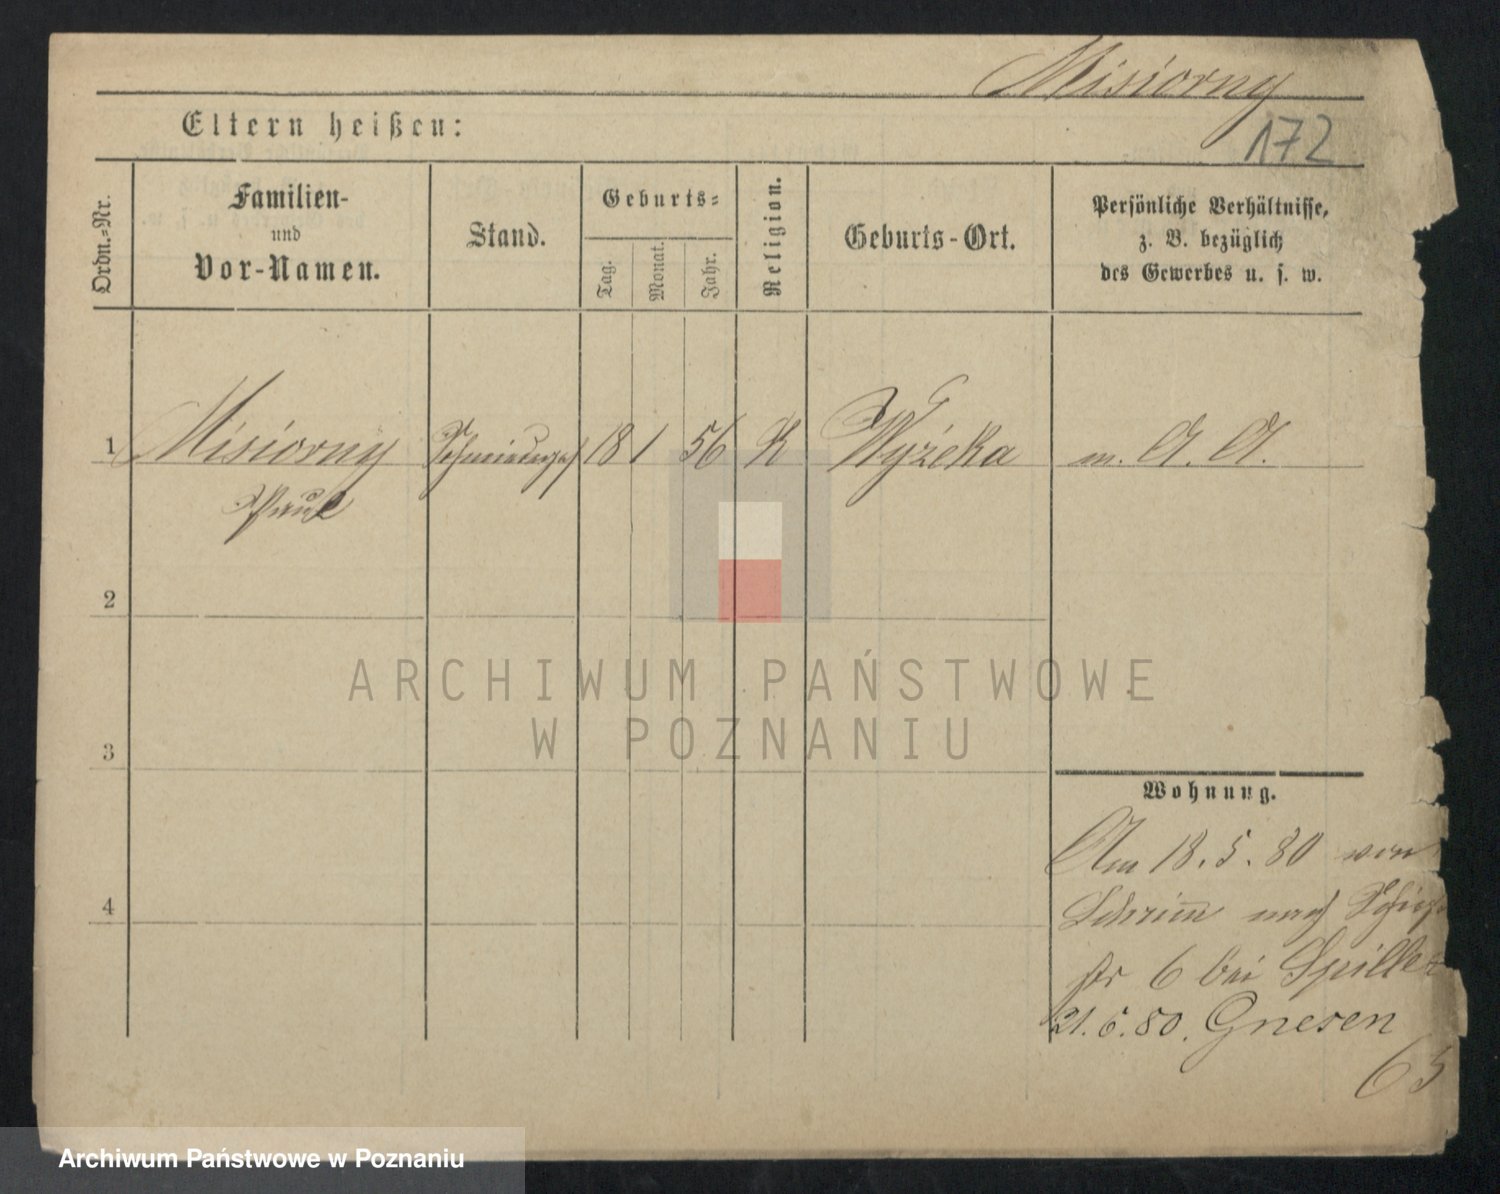 Misiorny
172
Eltern heißen:
Ordn.-Nr.
Familien-
und
Vor-Namen.
Stand.
Geburts-
Tag.
Monat.
Jahr.
Religion.
Geburts-Ort.
Persönliche Verhältnisse,
z. B. bezüglich
des Gewerbes u. s. w.
1 Misiorny Schmiedeges 18 1 56 K Wyżeka m. A. A.
Paul
2
3
4
Wohnung.
Am 18.5.80 von
Schrimm nach
str 6 bei Spiller
21.6.80. Gnesen
65
ARCHIWUM PAŃSTWOWE
W POZNANIU
Archiwum Państwowe w Poznaniu